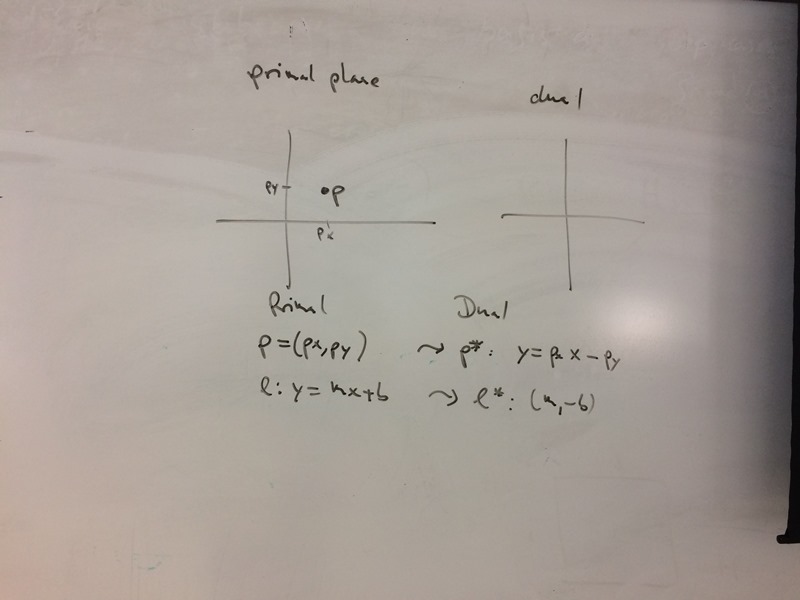 primal plane
dual
py
p
px
Primal Dual
p=(px,py) ⤳ p*: y=px x-py
l: y=mx+b ⤳ l*: (m,-b)